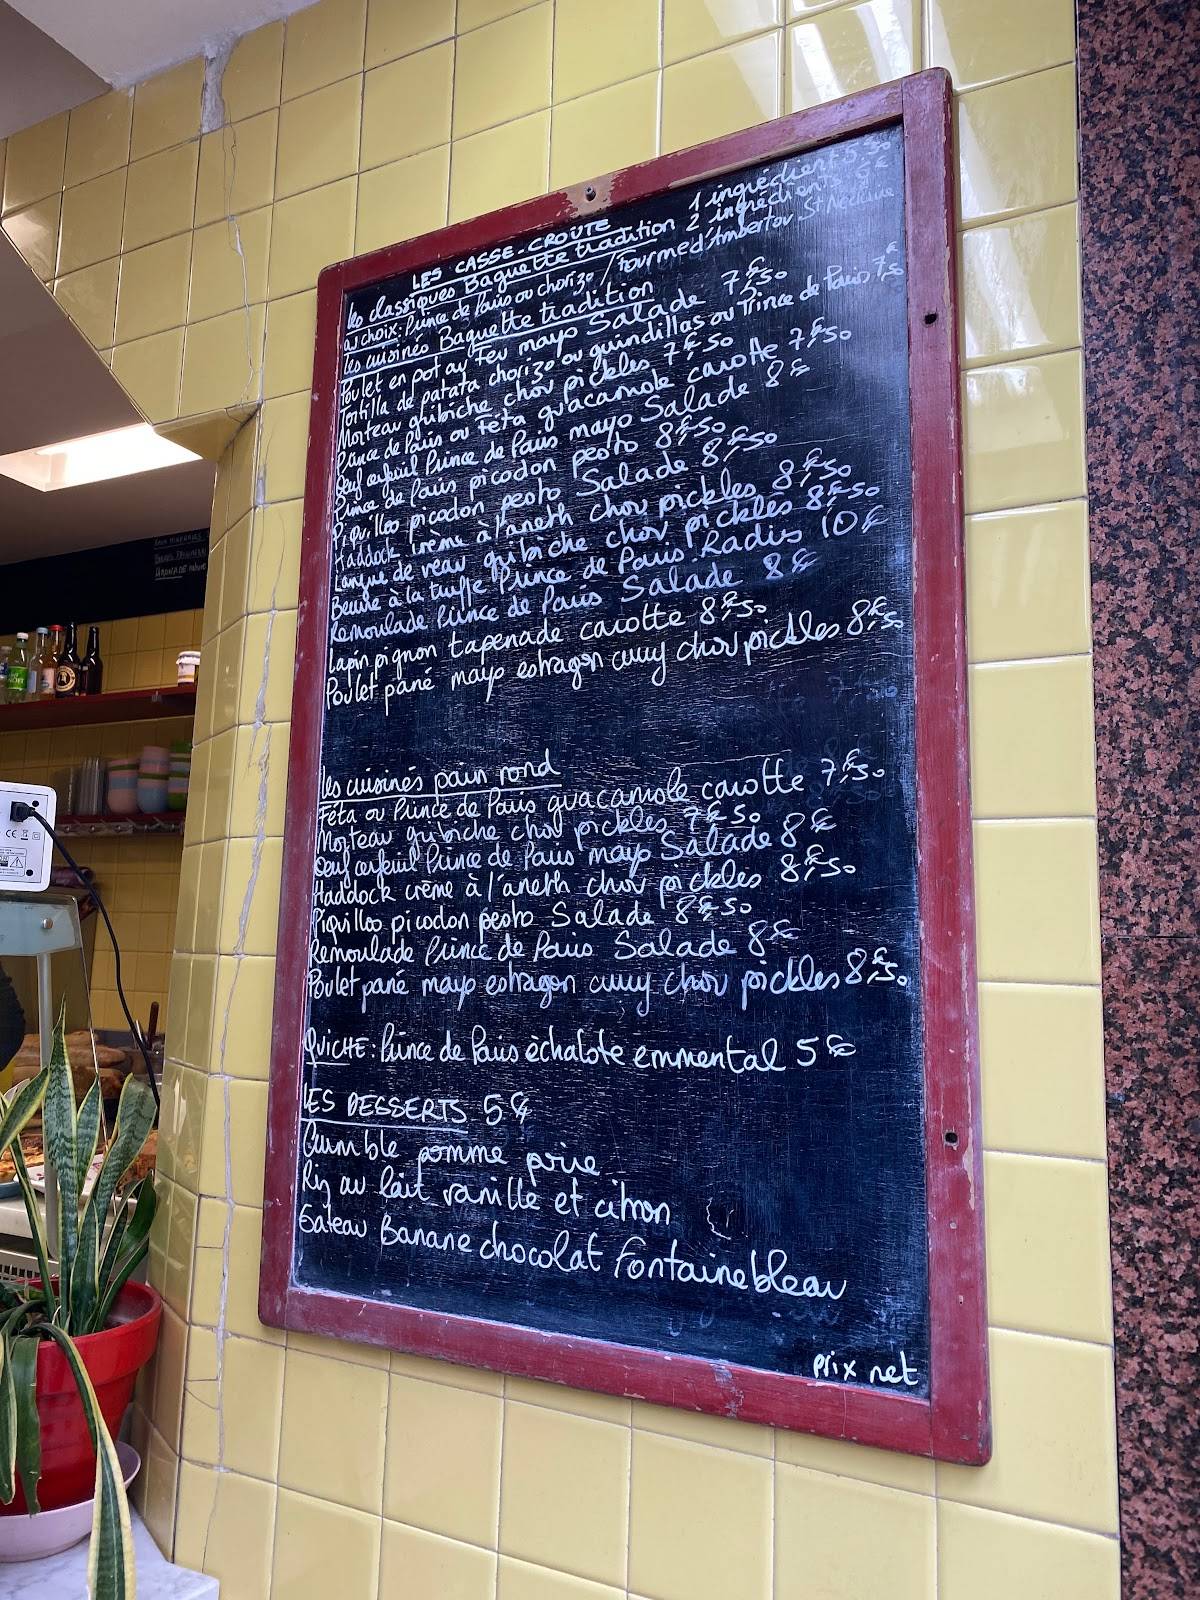 LES CASSE-CROUTE
Les classiques Baguette tradition 1 ingrédient 5.30
2 ingrédients 6€
au choix: Prince de Paris ou chorizo / Fourme d'Ambert ou St Nectaire
Les cuisinés Baguette tradition
Poulet en pot au feu mayo Salade 7€,50
Tortilla de patata chorizo ou guindillas ou Prince de Paris 7€,50
Morteau gribiche chou pickles 7€,50
Prince de Paris ou Féta guacamole carotte 7€,50
Œuf cerfeuil Prince de Paris mayo Salade 8€
Prince de Paris picodon pesto 8€,50
Piquillos picodon pesto Salade 8€,50
Haddock crème à l'aneth chou pickles 8€,50
Langue de veau gribiche chou pickles 8€,50
Beurre à la truffe Prince de Paris Radis 10€
Remoulade Prince de Paris Salade 8€
Lapin pignon tapenade carotte 8€,50
Poulet pané mayo estragon curry chou pickles 8€,50
Les cuisinés pain rond
Féta ou Prince de Paris guacamole carotte 7€,50
Morteau gribiche chou pickles 7€,50
Œuf cerfeuil Prince de Paris mayo Salade 8€
Haddock crème à l'aneth chou pickles 8€,50
Piquillos picodon pesto Salade 8€,50
Remoulade Prince de Paris Salade 8€
Poulet pané mayo estragon curry chou pickles 8€,50
QUICHE: Prince de Paris èchalote emmental 5€
LES DESSERTS 5€
Crumble pomme poire
Riz au lait vanille et citron
Gateau Banane chocolat Fontainebleau
prix net